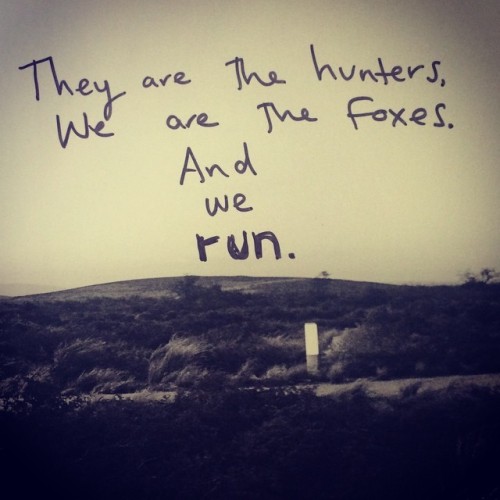 They are The hunters,
We are The foxes.
And
we
run.